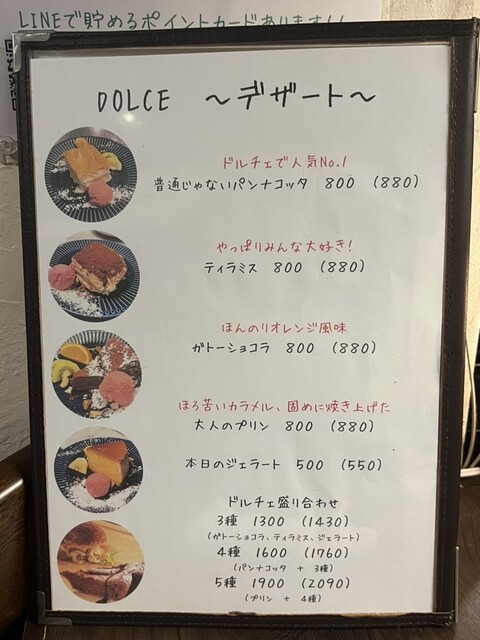 LINEで貯めるポイントカードあります!!
DOLCE ～デザート～
ドルチェで人気No.1
普通じゃないパンナコッタ 800 (880)
やっぱりみんな大好き!
ティラミス 800 (880)
ほんのりオレンジ風味
ガトーショコラ 800 (880)
ほろ苦いカラメル、固めに焼き上げた
大人のプリン 800 (880)
本日のジェラート 500 (550)
ドルチェ盛り合わせ
3種 1300 (1430)
(ガトーショコラ、ティラミス、ジェラート)
4種 1600 (1760)
(パンナコッタ + 3種)
5種 1900 (2090)
(プリン + 4種)